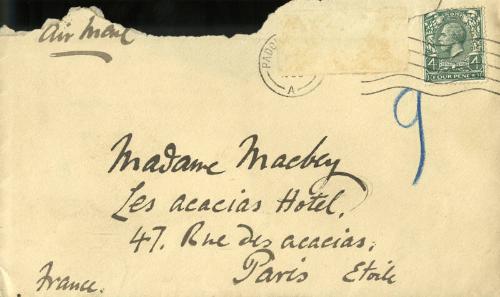 Air Mail
PADD
A
4 4
FOUR PENCE
9
Madame Macbey
Les acacias Hotel.
47. Rue des acacias.
Paris Etoile
France.